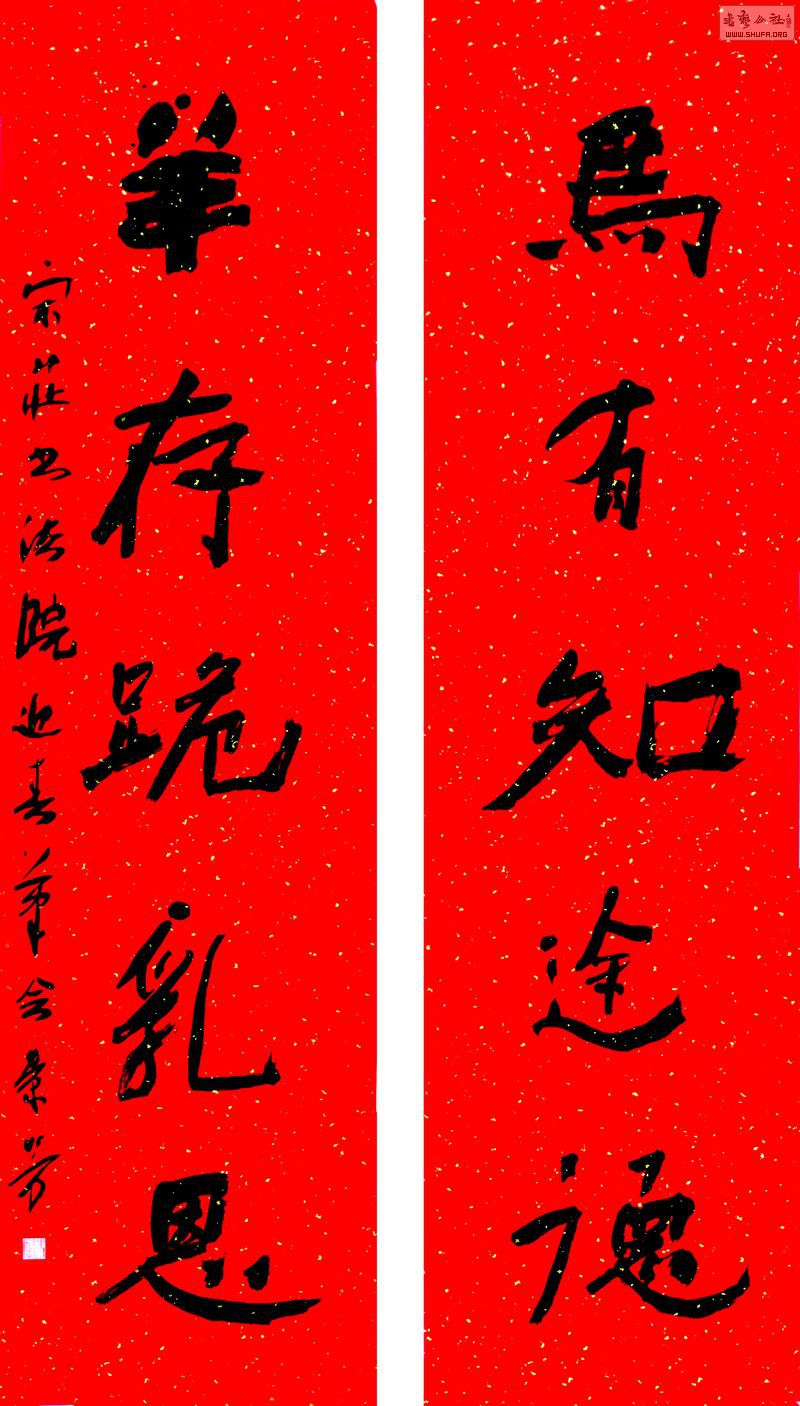 馬有知途德
羊存跪乳恩
宋莊书法院迎春筆会景芳
書藝公社
WWW.SHUFA.ORG